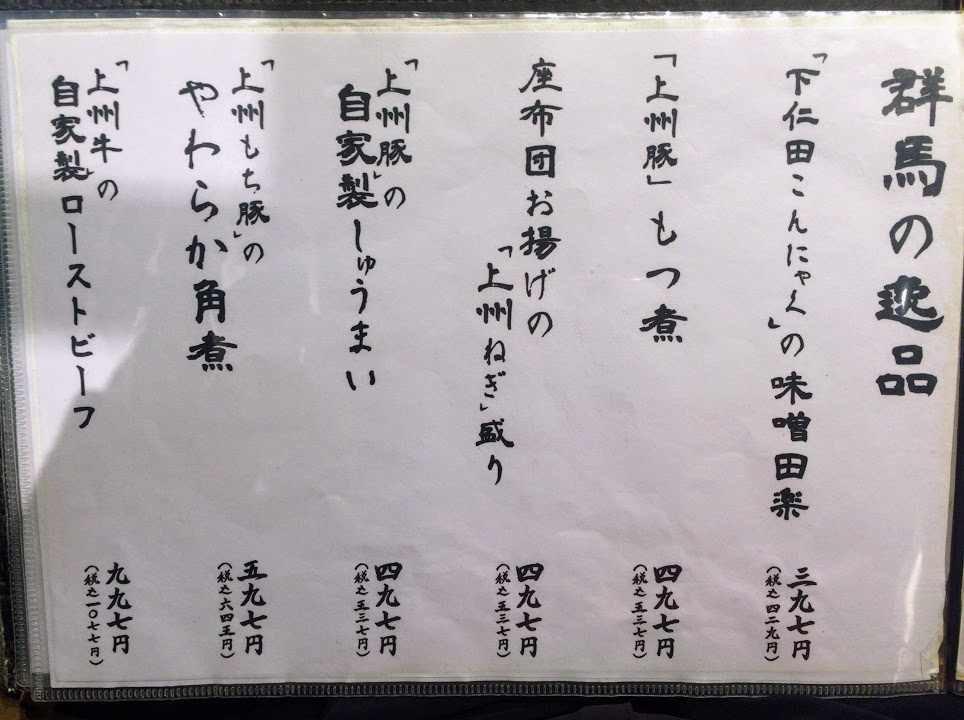 群馬の逸品
「下仁田こんにゃく」の味噌田楽
三九七円
(税込四二九円)
「上州豚」もつ煮
四九七円
(税込五三七円)
座布団お揚げの
「上州ねぎ」盛り
四九七円
(税込五三七円)
「上州豚」の
自家製しゅうまい
四九七円
(税込五三七円)
「上州もち豚」の
やわらか角煮
五九七円
(税込六四五円)
「上州牛」の
自家製ローストビーフ
九九七円
(税込一〇七七円)